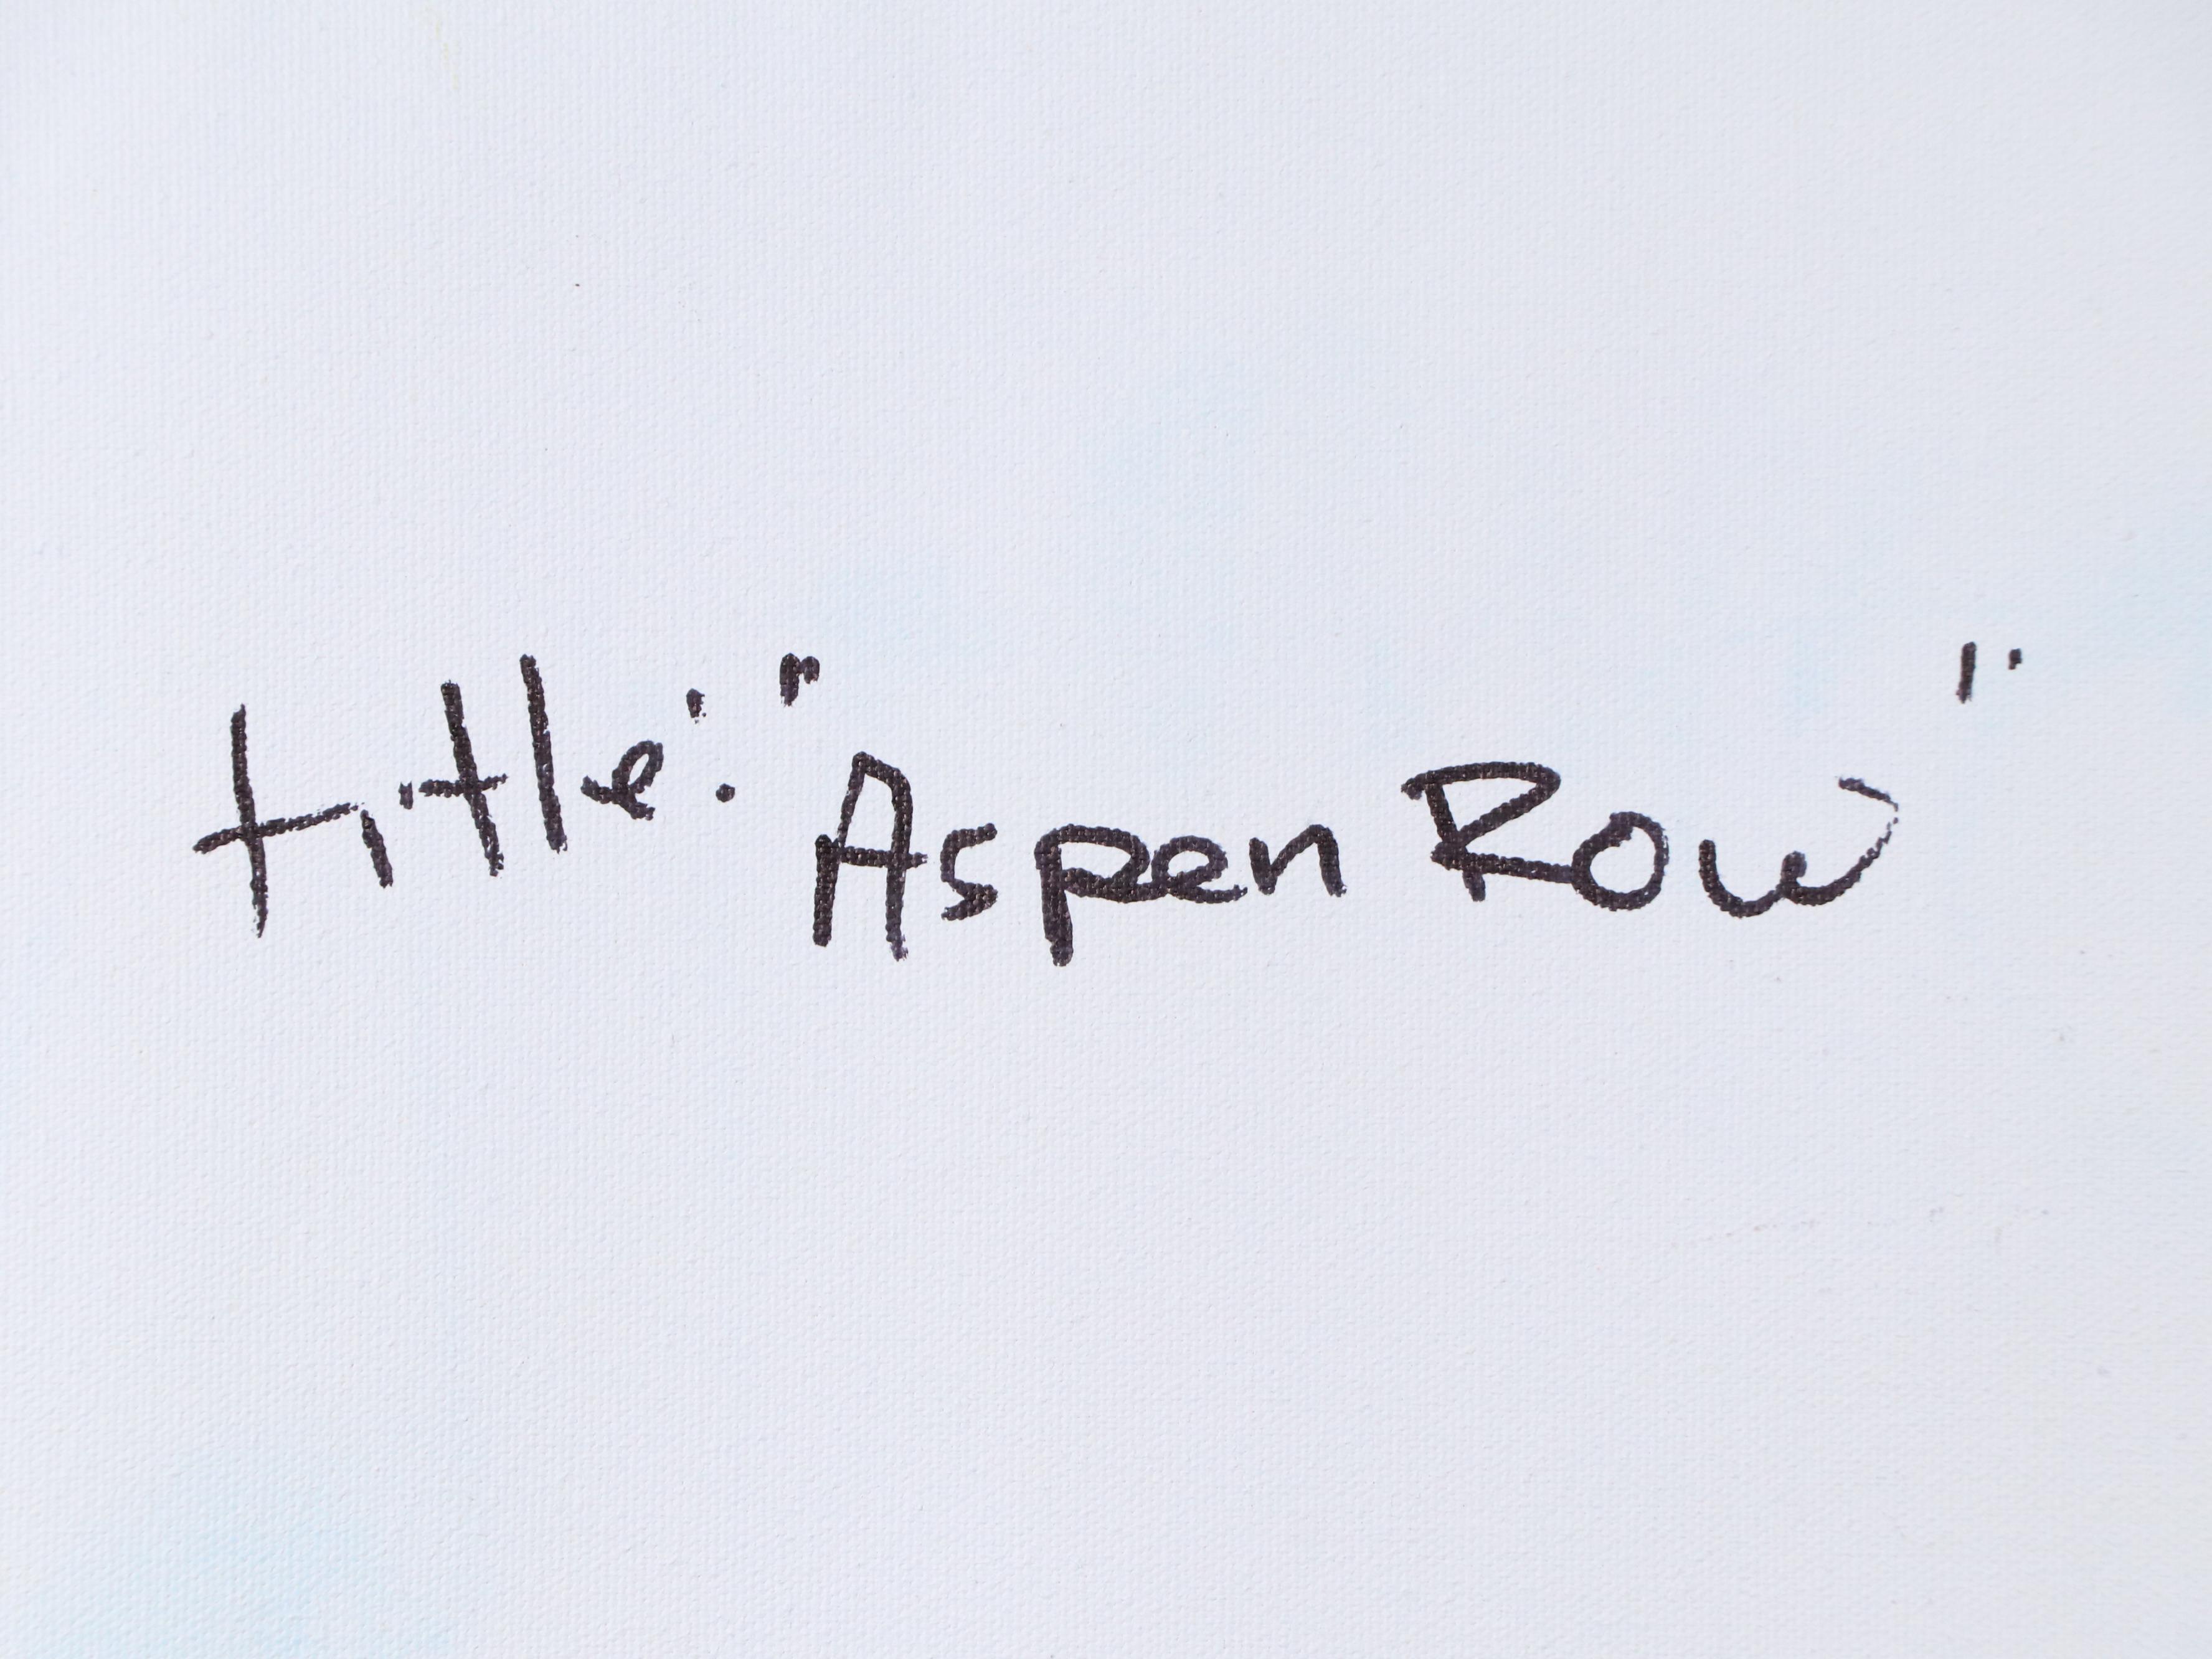 title: "Aspen Row"